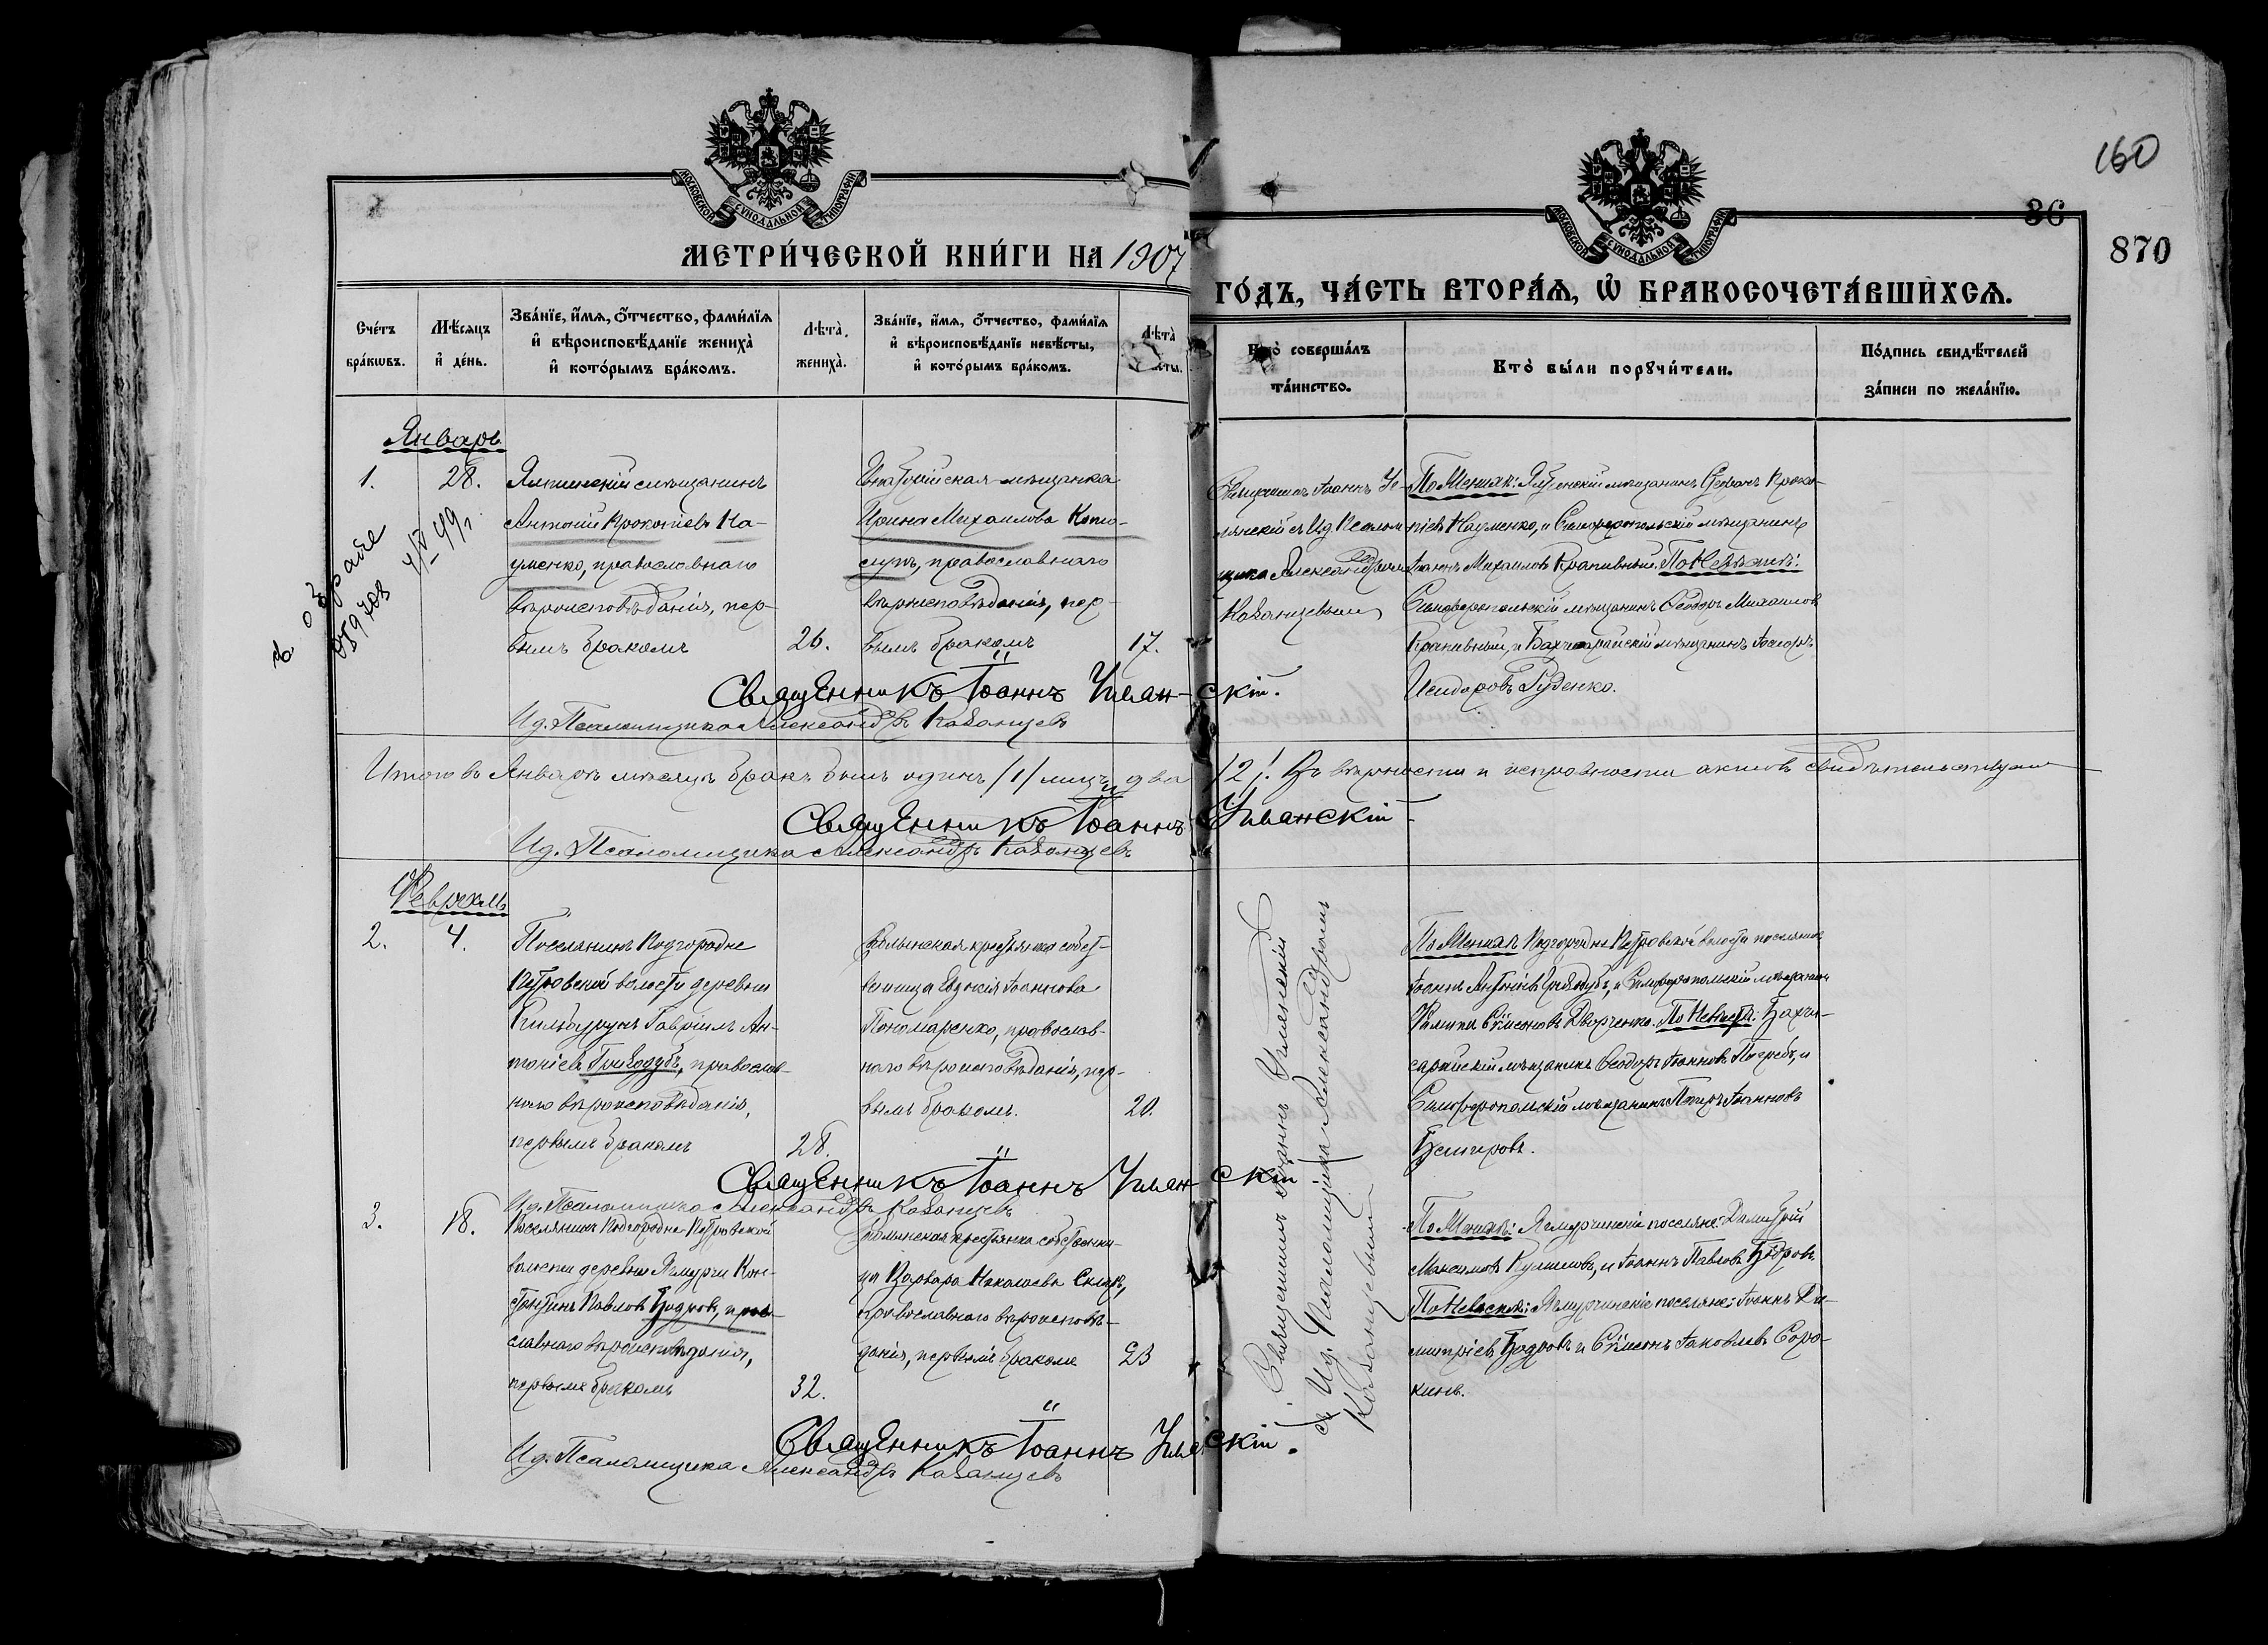 160
86
870
МОСКОВСКОЙ СУНОДАЛЬНОЙ ТИПОГРАФІИ
МОСКОВСКОЙ СУНОДАЛЬНОЙ ТИПОГРАФІИ
МЕТРИ́ЧЕСКОЙ КНИ́ГИ НА 1907
ГО́ДЪ, ЧА́СТЬ ВТОРА́Я, Ѡ БРАКОСОЧЕТА́ВШИХСЯ.
Сче́тъ бра́кѡвъ.
Мѣ́сяцъ и҆ де́нь.
Зва́нїе, и҆́мя, ѻ҆́тчество, фами́лїя и҆ вѣроисповѣ́данїе жениха̀ и҆ кото́рымъ бра́комъ.
Лѣта̀ жениха̀.
Зва́нїе, и҆́мя, ѻ҆́тчество, фами́лїя и҆ вѣроисповѣ́данїе невѣ́сты, и҆ кото́рымъ бра́комъ.
Лѣта̀
Кто̀ соверша́лъ та́инство.
Кто̀ бы́ли порꙋчи́тели.
По́дпись свидѣ́телей за́писи по жела́нїю.
Январь
1.
28.
Ялтинскій мѣщанинъ
Антоній Прокопіевъ На-
уменко, православнаго
вѣроисповѣданія, пер-
вымъ бракомъ
26.
мѣщанка
Ирина Михаилова
православнаго
вѣроисповѣданія, пер-
вымъ бракомъ
17.
Священникъ Іоаннъ Ум-
анскій съ И.д. Псалом-
щика Александромъ
Казанцевымъ
По Женихѣ: мѣщанинъ Стефанъ Проко-
піевъ Науменко, и Симферопольскій мѣщанинъ
Іоаннъ Михаиловъ Крапивный. По Невѣстѣ:
Симферопольскій мѣщанинъ Ѳеодоръ Михаиловъ
Крапивный, и Бахчисарайскій мѣщанинъ
Исидоровъ Руденко.
Священникъ Іоаннъ Уманскій.
И.д. Псаломщика Александръ Казанцевъ
Итого въ Январѣ мѣсяцѣ бракъ былъ одинъ /1/ лицъ два /2/. Въ вѣрности и исправности актовъ свидѣтельствуемъ
Священникъ Іоаннъ Уманскій
И.д. Псаломщика Александръ Казанцевъ
Февраль
2.
4.
Поселянинъ Подгородне
Петровской волости деревни
Кильбурунъ Гавріилъ Ан-
тоніевъ Гниводубъ, православ-
наго вѣроисповѣданія,
первымъ бракомъ
28.
Волынская крестьянка собст-
венница Евдокія Іоаннова
Пономаренко, православ-
наго вѣроисповѣданія, пер-
вымъ бракомъ.
20.
По Женихѣ Подгородне Петровской волости поселянинъ
Іоаннъ Антоніевъ Гниводубъ, и Симферопольскій мѣщанинъ
Филиппъ Сѵмеоновъ Дворченко. По Невѣстѣ: Бахчи-
сарайскій мѣщанинъ Ѳеодоръ Іоанновъ Погребъ, и
Симферопольскій мѣщанинъ Петръ Іоанновъ
Священникъ Іоаннъ Уманскій
И.д. Псаломщика Александръ Казанцевъ
Священникъ Іоаннъ Уманскій
съ И.д. Псаломщика Александромъ
Казанцевымъ
3.
18.
Поселянинъ Подгородне Петровской
волости деревни Ямурчи Кон-
стантинъ Павловъ Бодровъ, право-
славнаго вѣроисповѣданія,
первымъ бракомъ
32.
Волынская крестьянка собственни-
ца Варвара Николаева
православнаго вѣроисповѣ-
данія, первымъ бракомъ
23
По Женихѣ: Ямурчинскіе поселяне: Димитрій
Максимовъ Куликовъ, и Іоаннъ Павловъ Бодровъ.
По Невѣстѣ: Ямурчинскіе поселяне: Іоаннъ Ди-
митріевъ Бодровъ и Сѵмеонъ Іаковлевъ Соро-
кинъ.
Священникъ Іоаннъ Уманскій.
И.д. Псаломщика Александръ Казанцевъ